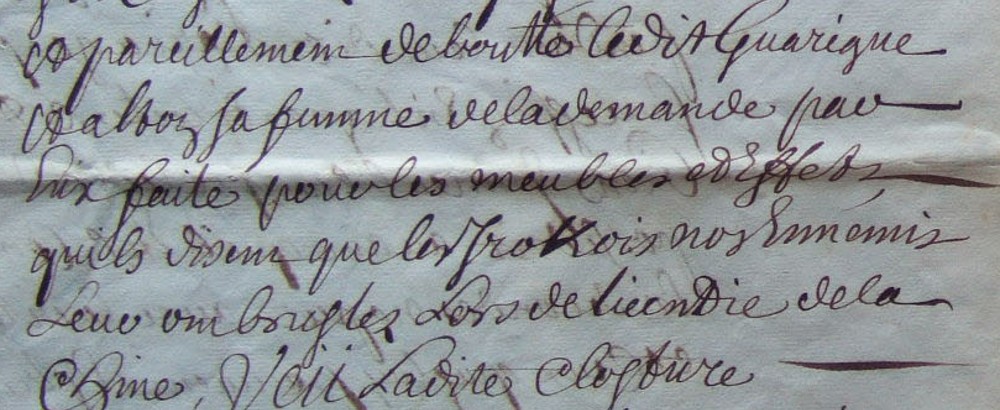 et pareillement deboutté ledit Guarigue
et alboz sa femme de la demande par
Eux faite pour les meubles et Effets
quils disent que les Irokois nos Ennemis
Leur ont bruslez Lors de lincendie de la
Chine, Veü Ladite Closture